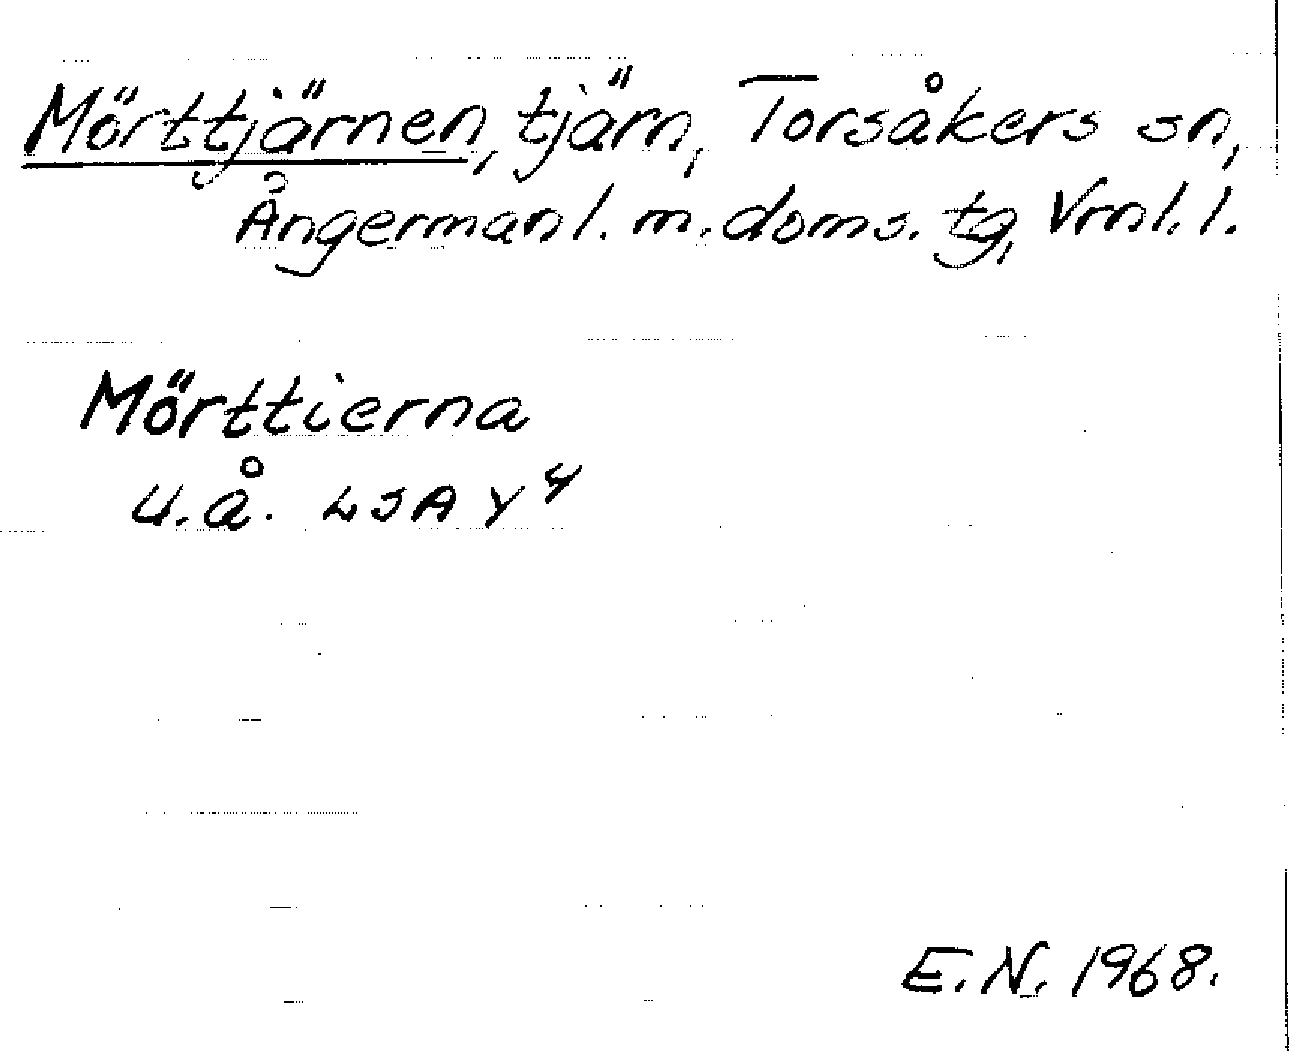 Mörttjärnen, tjärn, Torsåkers sn,
Ångermanl. m. doms. tg, Vrnl. l.
Mörttierna
u.å. LSA Y 4
E.N. 1968.